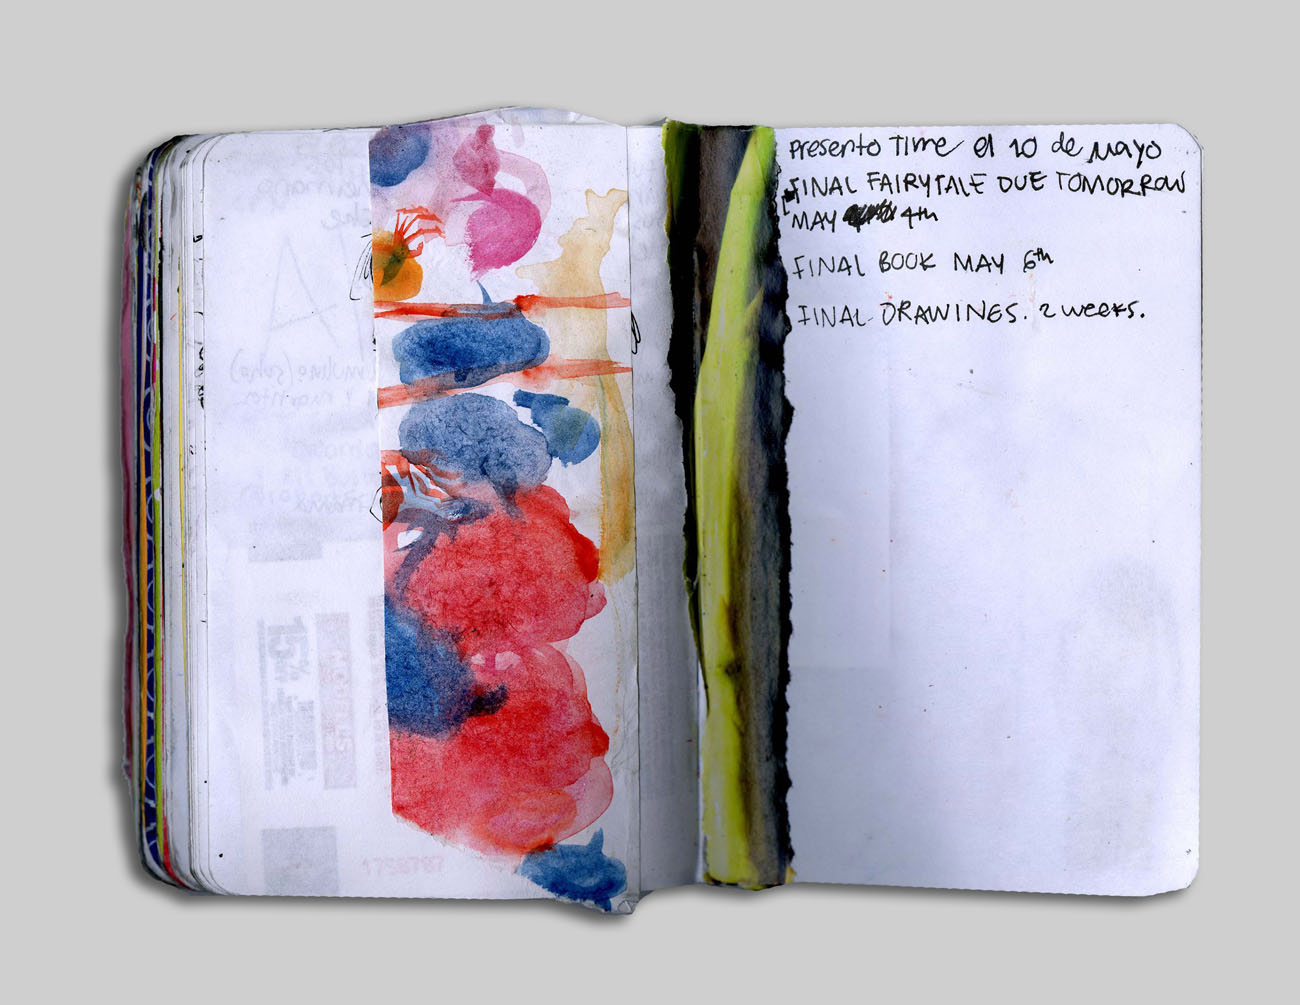 Presento Time el 10 de Mayo
FINAL FAIRYTALE DUE TOMORROW
MAY 4th
FINAL BOOK MAY 6th
FINAL DRAWINGS. 2 weeks.
1758787